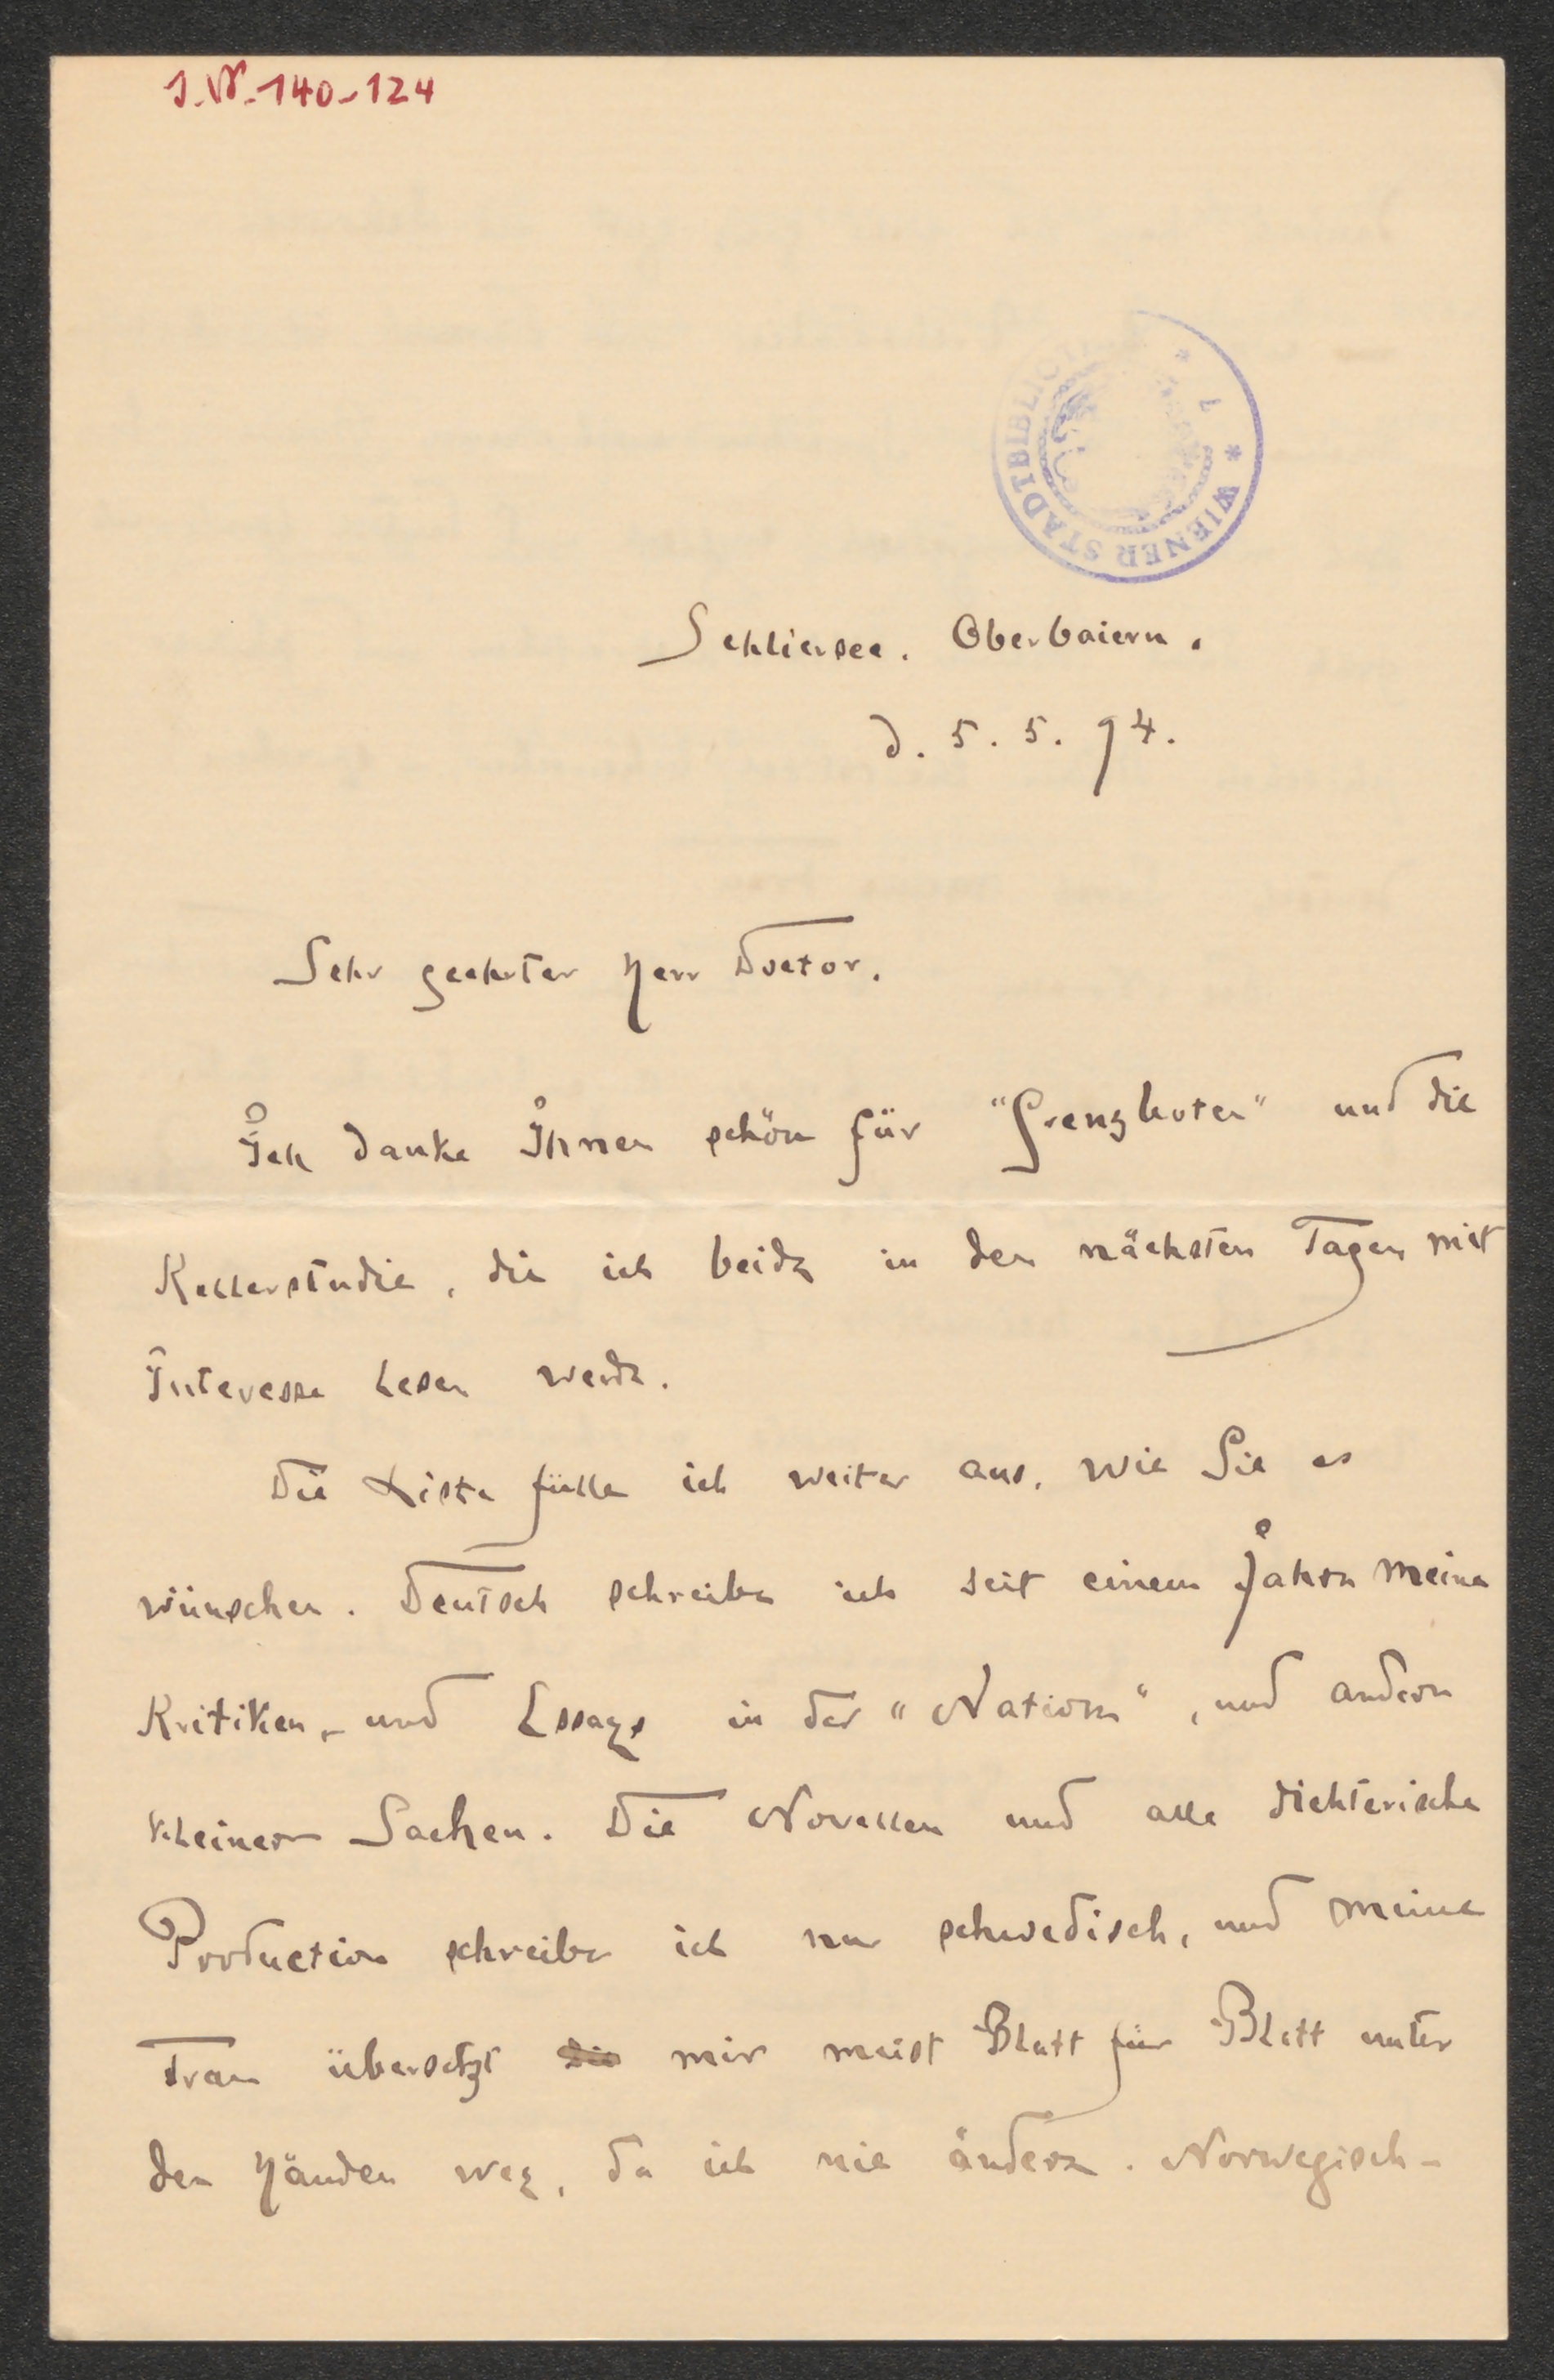 J.N. 140-124
* WIENER STADTBIBLIOT
Schliersee. Oberbaiern.
d. 5. 5. 94.
Sehr geehrter Herr Doctor.
Ich danke Ihnen schön für "Grenzboten" und die
Kellerstudie, die ich beide in den nächsten Tagen mit
Interesse lesen werde.
Die Liste fülle ich weiter aus, wie Sie es
wünschen. Deutsch schreibe ich seit einem Jahre meine
Kritiken, und Essays in der "Nation", und andere
kleinere Sachen. Die Novellen und alle dichterische
Production schreibe ich nur schwedisch, und meine
Frau übersetzt die mir meist Blatt für Blatt unter
den Händen weg, da ich nie ändere. Norwegisch-